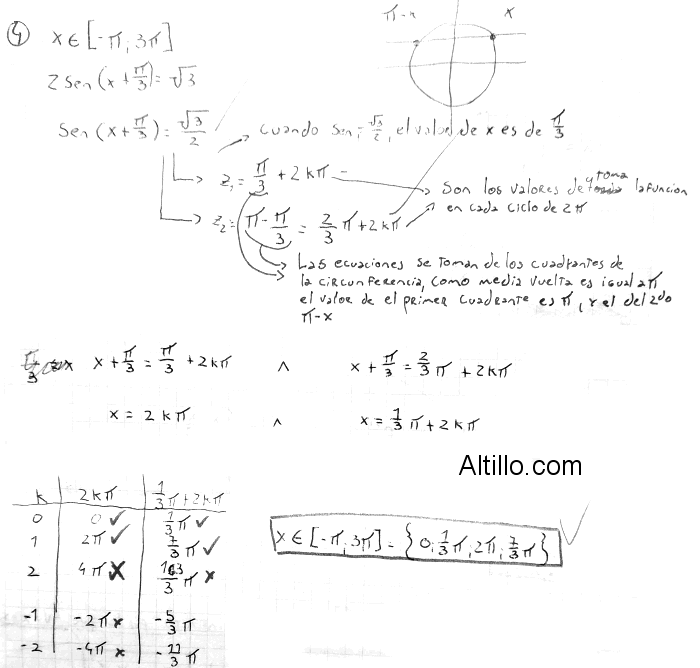 4) x ∈ [-π; 3π]
π-x x
2 sen (x + π/3) = √3
Sen (x + π/3) = √3/2
Cuando Sen = √3/2, el valor de x es de π/3
z₁ = π/3 + 2kπ
Son los valores de q toma la funcion
en cada ciclo de 2π
z₂ = π - π/3 = 2/3 π + 2kπ
Las ecuaciones se toman de los cuadrantes de
la circunferencia, como media vuelta es igual a π
el valor de el primer cuadrante es π, y el del 2do
π-x
x + π/3 = π/3 + 2kπ ∧ x + π/3 = 2/3 π + 2kπ
x = 2kπ ∧ x = 1/3 π + 2kπ
Altillo.com
k 2kπ 1/3 π + 2kπ
0 0 ✓ 1/3 π ✓
1 2π ✓ 7/3 π ✓
2 4π x /3 π x
-1 -2π x -5/3 π
-2 -4π x -11/3 π
x ∈ [-π; 3π] = {0; 1/3 π; 2π; 7/3 π} ✓